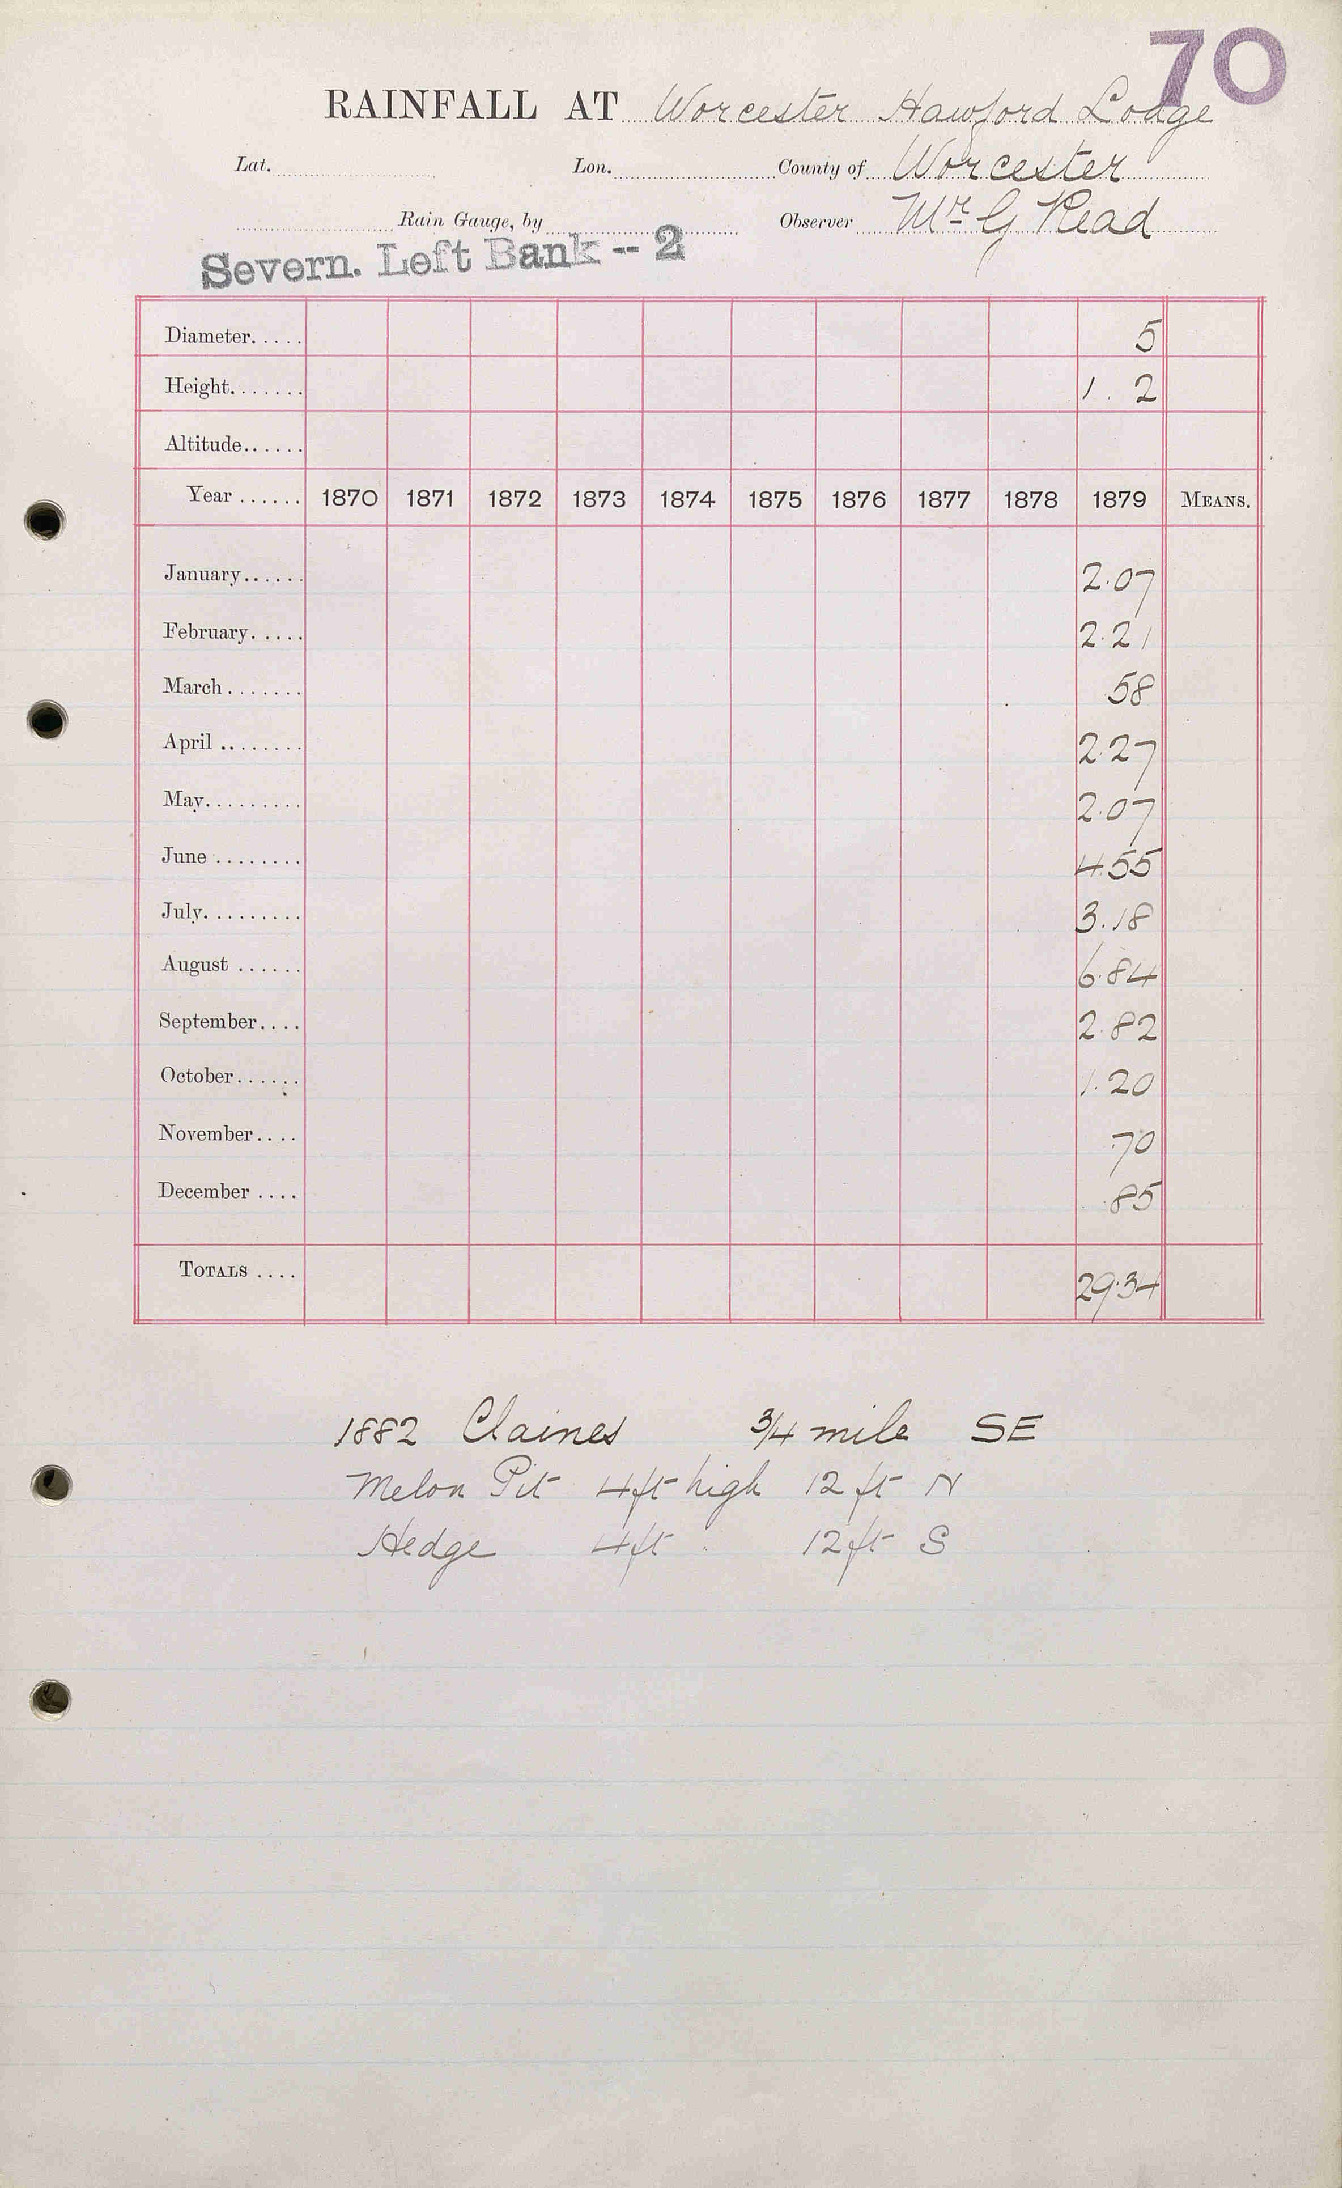 70
RAINFALL AT Worcester Hawford Lodge
Lat. Lon. County of Worcester
Rain Gauge, by Observer Mr G Read
Severn. Left Bank -- 2
Diameter..... 5
Height....... 1. 2
Altitude......
Year ...... 1870 1871 1872 1873 1874 1875 1876 1877 1878 1879 MEANS.
January...... 2.07
February..... 2.21
March....... 58
April ........ 2.27
May......... 2.07
June ........ 4.55
July......... 3.18
August ...... 6.84
September.... 2.82
October...... 1.20
November.... .70
December .... .85
TOTALS .... 29.34
1882 Claines 3/4 mile SE
Melon Pit 4ft high 12 ft N
Hedge 4ft 12ft S